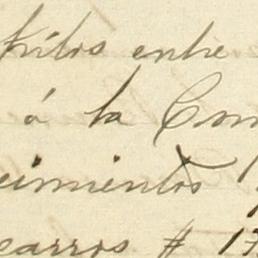 kilos entre
á la Com
cimientos
carros # 17